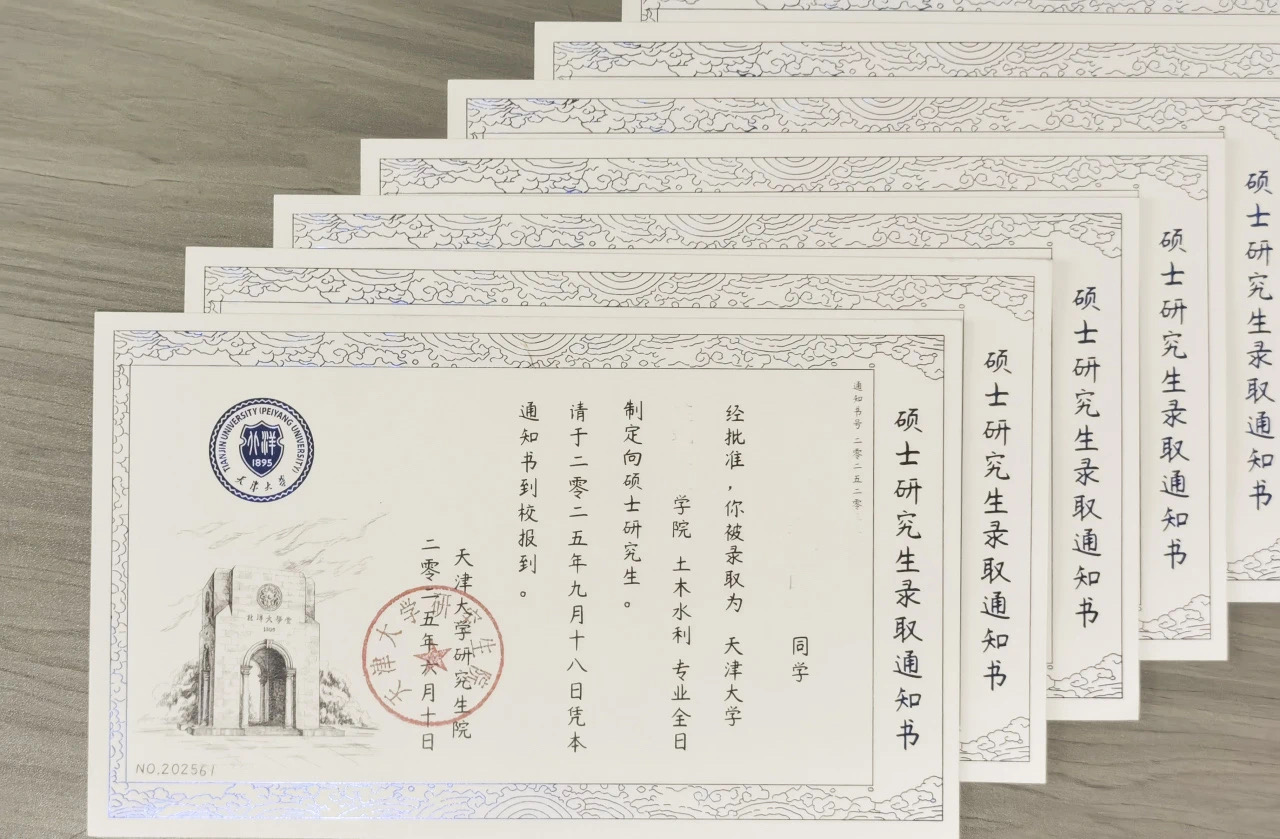 硕士研究生录取通知书
硕士研究生录取通知书
硕士研究生录取通知书
硕士研究生录取通知书
硕士研究生录取通知书
通知书号 二零二五二零
同学
经批准，你被录取为 天津大学
学院 土木水利 专业全日
制定向硕士研究生。
请于二零二五年九月十八日凭本
通知书到校报到。
天津大学研究生院
二零二五年六月十日
天津大学研究生院
TIANJIN UNIVERSITY (PEIYANG UNIVERSITY)
北洋
1895
天津大学
北洋大學堂
NO.202561